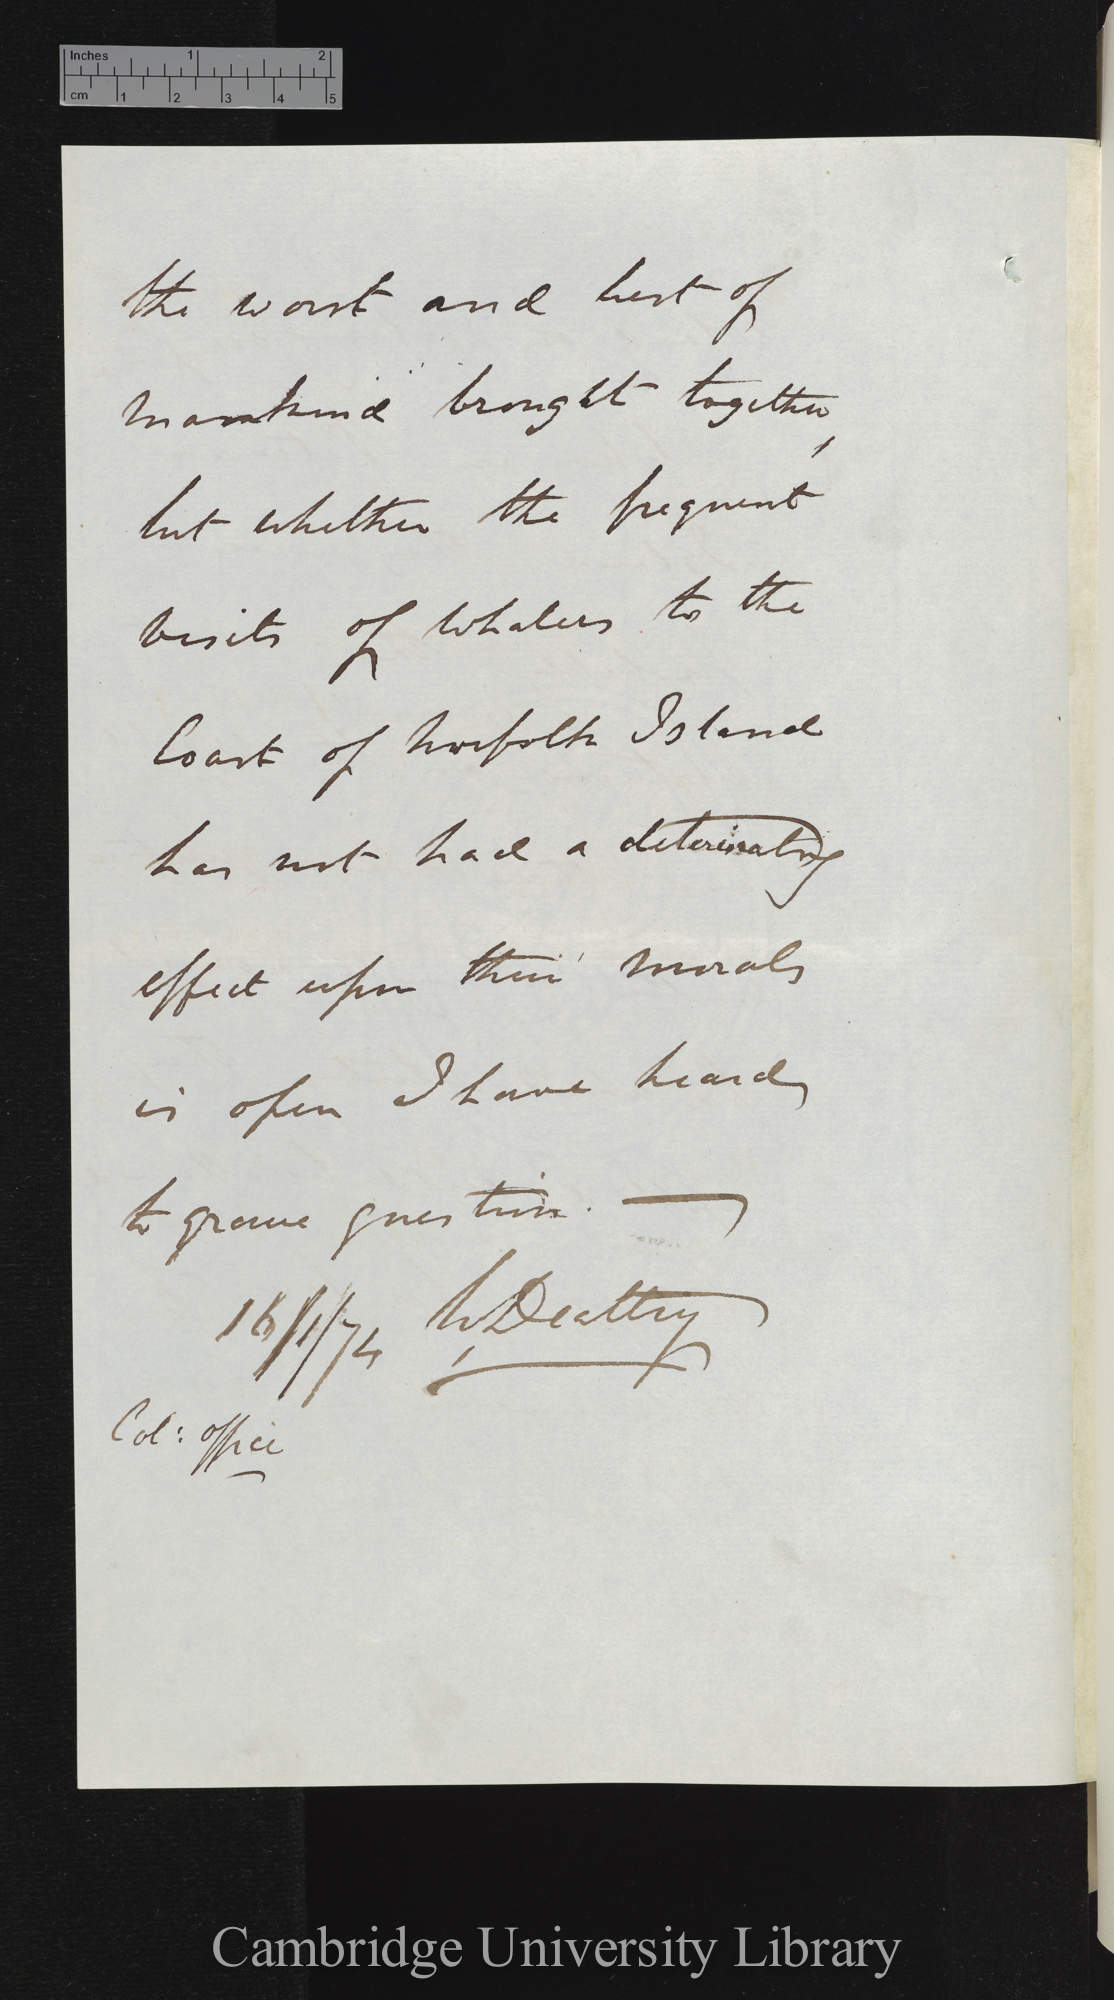 Inches 1 2
cm 1 2 3 4 5
the worst and best of
mankind brought together,
but whether the frequent
visits of Whalers to the
Coast of Norfolk Island
has not had a deteriorating
effect upon their morals
is open I have heard,
to grave question. —
16/1/74 W Dealtry
Col: office
Cambridge University Library